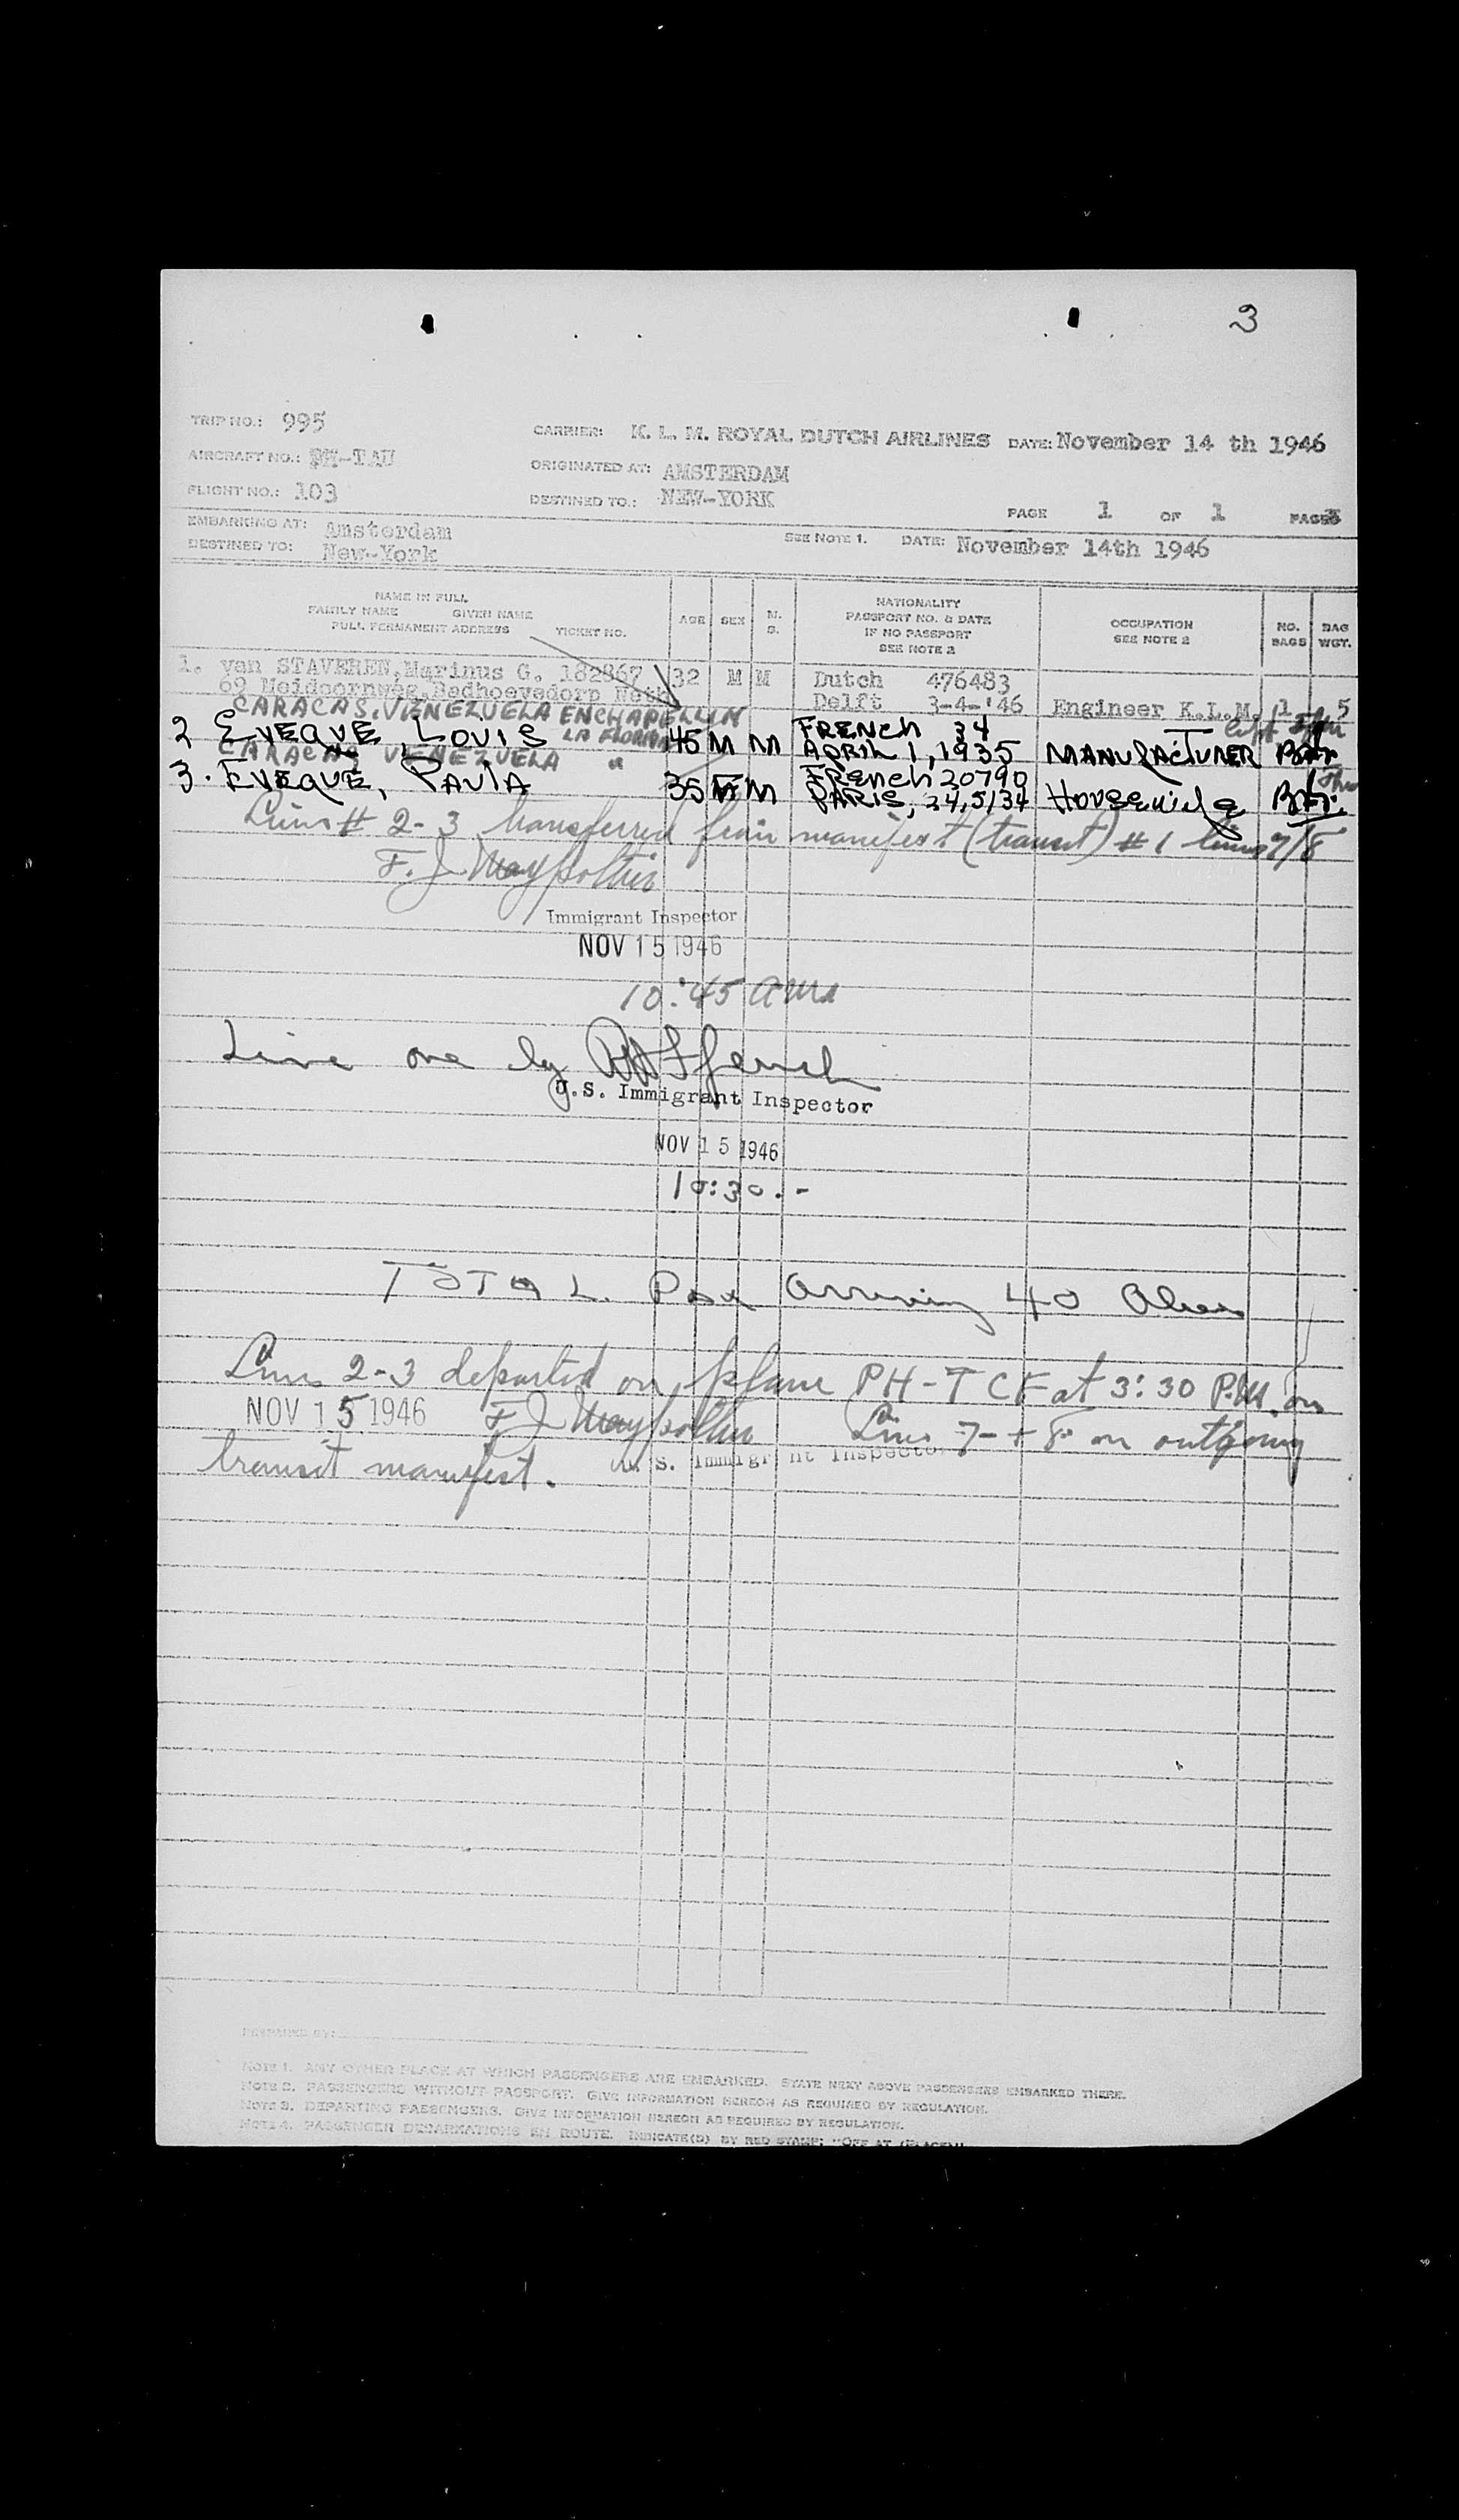 3
TRIP NO.: 995
CARRIER: K. L. M. ROYAL DUTCH AIRLINES DATE: November 14 th 1946
AIRCRAFT NO.: PH-TAU
ORIGINATED AT: AMSTERDAM
FLIGHT NO.: 103
DESTINED TO.: NEW-YORK
PAGE 1 OF 1 PAGES
EMBARKING AT: Amsterdam
SEE NOTE 1. DATE: November 14th 1946
DESTINED TO: New-York
NAME IN FULL
FAMILY NAME GIVEN NAME
FULL PERMANENT ADDRESS TICKET NO.
AGE SEX M. S.
NATIONALITY
PASSPORT NO. & DATE
IF NO PASSPORT
SEE NOTE 2
OCCUPATION
SEE NOTE 2
NO. BAGS
BAG WGT.
1. van STAVEREN, Marinus G. 182867 32 M M Dutch 476483
69 Meidoornweg, Badhoevedorp Neth Delft 3-4-'46 Engineer K.L.M. 1 5
CARACAS, VENEZUELA ENCHAPELLIN
2 EVEQUE, LOUIS LA FLORIDA 45 M M FRENCH 34
APRIL 1, 1935 MANUFACTURER
CARACAS VENEZUELA "
3. EVEQUE, PAULA 35 F M FRENCH 20790
PARIS, 24,5/34 HOUSEWIFE
Lines # 2-3 transferred from manifest (transit) # 1 lines 7/8
F. J.
Immigrant Inspector
NOV 15 1946
10:45 AM
Line one by
U.S. Immigrant Inspector
NOV 15 1946
10:30.-
TOTAL Pax arriving 40 Aliens
Lines 2-3 departed on plane PH-TCF at 3:30 P.M. on
NOV 15 1946 F J Lines 7 + 8 on outgoing
transit manifest. U. S. Immigrant Inspector
PREPARED BY:
NOTE 1. ANY OTHER PLACE AT WHICH PASSENGERS ARE EMBARKED. STATE NEXT ABOVE PASSENGERS EMBARKED THERE.
NOTE 2. PASSENGERS WITHOUT PASSPORT. GIVE INFORMATION HEREON AS REQUIRED BY REGULATION.
NOTE 3. DEPARTING PASSENGERS. GIVE INFORMATION HEREON AS REQUIRED BY REGULATION.
NOTE 4. PASSENGER DEBARKATIONS EN ROUTE. INDICATE(D) BY RED STAMP: "OFF AT (PLACE)"